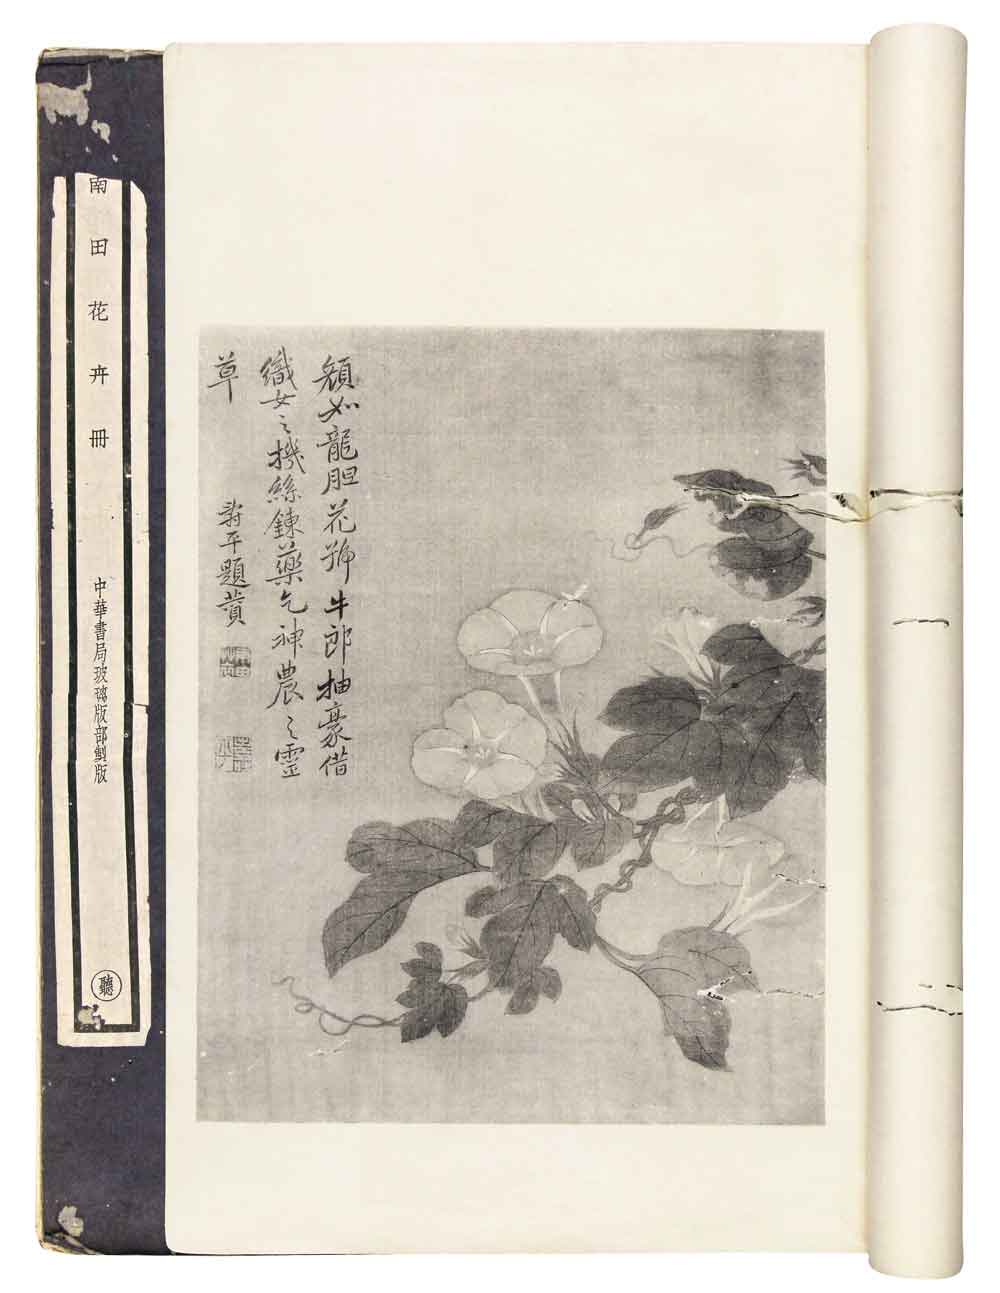 南田花卉冊
中華書局玻璃版部製版
聽
頩如龍胆花號牛郎抽豪借
織女之機絲鍊藥乞神農之靈
草
壽平題贊